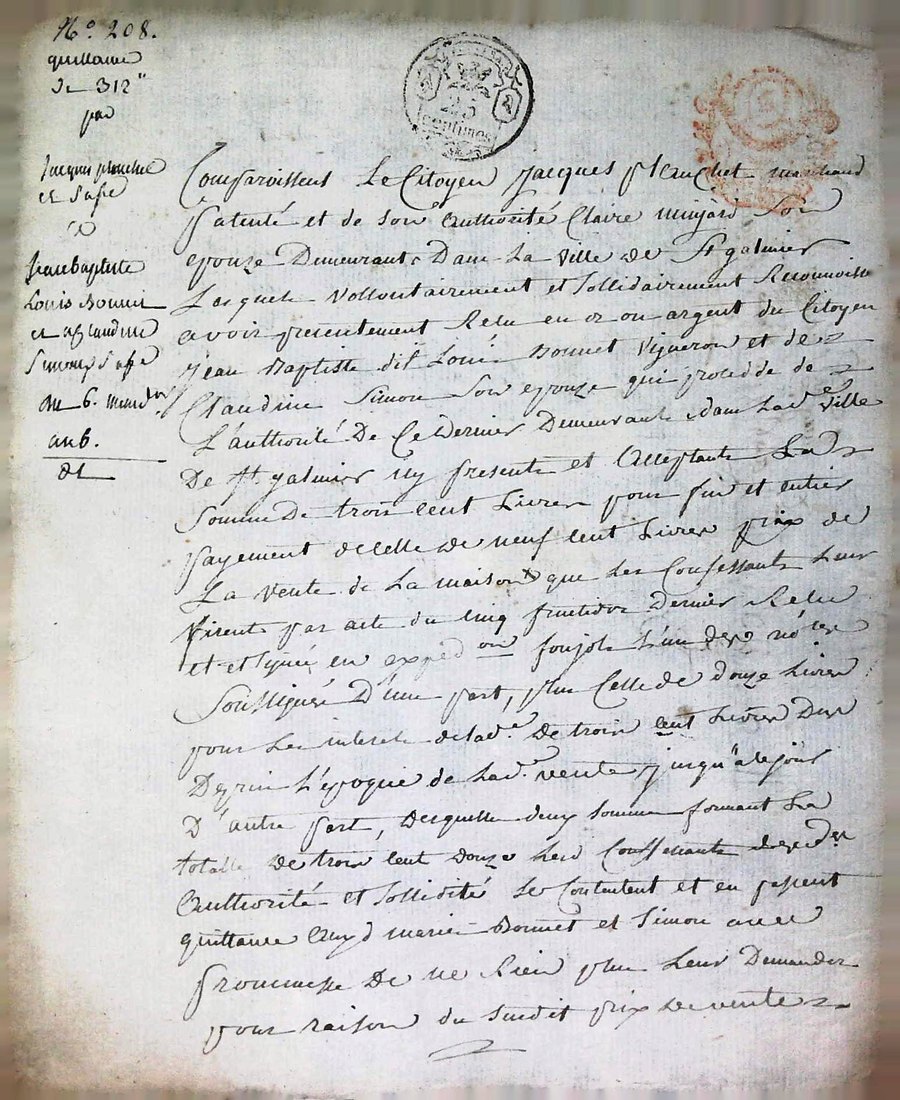 N.o 208.
quittance
De 312"
par
Jacques plouchet
et Sa fe
a
Jean baptiste
Louis Bonnet
et Claudine
Simon Sa fe
du 6. mend.re
an 6.
25
centimes
Comparoissent Le Citoyen Jacques plouchet marchand
patenté et de Son authorité Claire minjard Son
epouze Demeurants Dans La Ville de St galmier
Lesquels vollontairement et Sollidairement Reconnoisse
avoir presentement Relu en or ou argent du Citoyen
jean Baptiste dit Louis Bonnet Vigneron et de
Claudine Simon Son epouze qui procedde de
L'authorité De Ce Dernier Demeurants dans Lad.e Ville
De St galmier icy presents et acceptants La
Somme De trois Cent Livres pour fin et entier
payement de celle de neuf Cent Livres prix de
La vente de La maison que Les Confessants Leur
firent par acte du cinq fructidor Dernier Relu
et et Signé en expedon foujols L'un des notres
Soussignés D'une part, plus Celle de Douze Livres
pour Les interets de lad.e De trois Cent Livres Dus
Depuis L'epoque de Lad.e vente jusqu'a ce jour
D'autre part, desquelle deux Somme formant La
totalle De trois Cent Douze Les Confessants
authorité et Sollidité Se Contentent et en passent
quittance auxd mariés Bonnet et Simon avec
promesse De ne Rien plus Leur Demander
pour raison du Susdit prix De vente